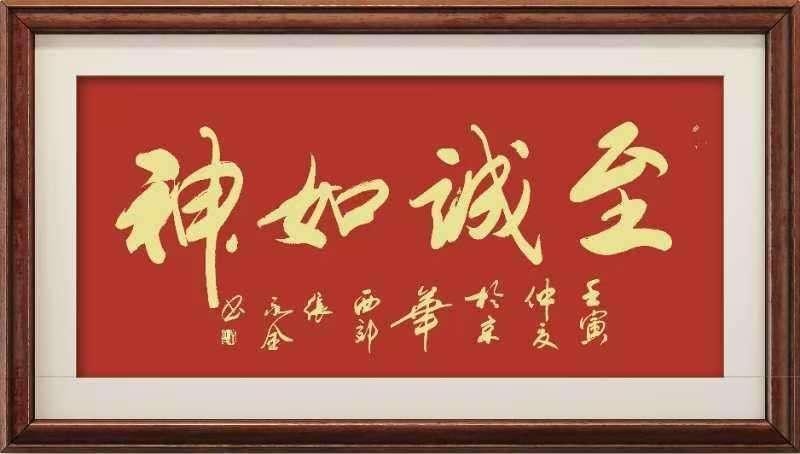 至诚如神
壬寅
仲夏
於京
華
西郊
張
永金
书